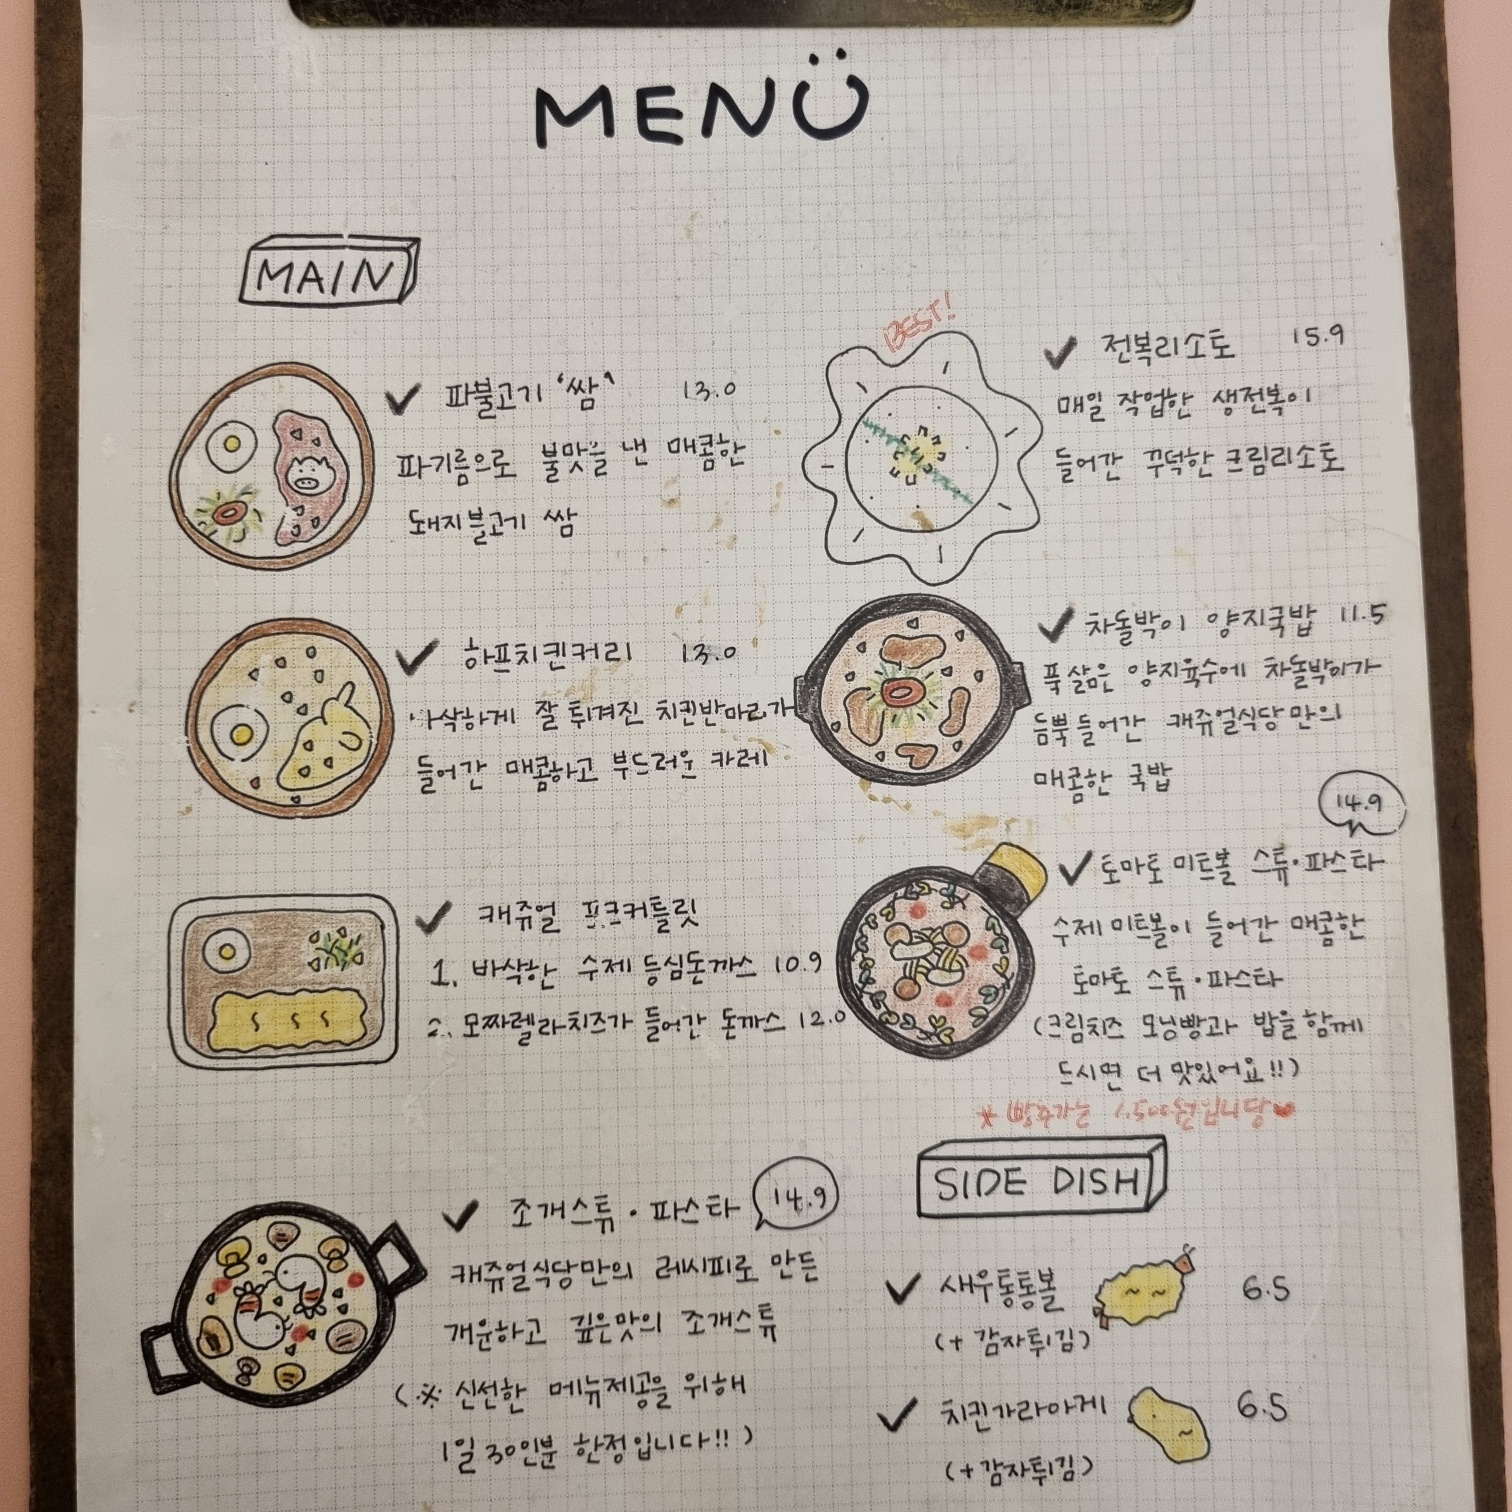 MENU
MAIN
파불고기 '쌈' 13.0
파기름으로 불맛을 낸 매콤한
돼지불고기 쌈
하프치킨커리 13.0
바삭하게 잘 튀겨진 치킨반마리가
들어간 매콤하고 부드러운 카레
캐쥬얼 포크커틀릿
1. 바삭한 수제 등심돈까스 10.9
2. 모짜렐라치즈가 들어간 돈까스 12.0
조개스튜·파스타 14.9
캐쥬얼식당만의 레시피로 만든
개운하고 깊은맛의 조개스튜
(※ 신선한 메뉴제공을 위해
1일 30인분 한정입니다!!)
BEST!
전복리소토 15.9
매일 작업한 생전복이
들어간 꾸덕한 크림리소토
차돌박이 양지국밥 11.5
푹 삶은 양지육수에 차돌박이가
듬뿍 들어간 캐쥬얼식당만의
매콤한 국밥
14.9
토마토 미트볼 스튜·파스타
수제 미트볼이 들어간 매콤한
토마토 스튜·파스타
(크림치즈 모닝빵과 밥을 함께
드시면 더 맛있어요!!)
* 빵추가는 1,500원입니당♥
SIDE DISH
새우통통볼 6.5
(+ 감자튀김)
치킨가라아게 6.5
(+ 감자튀김)